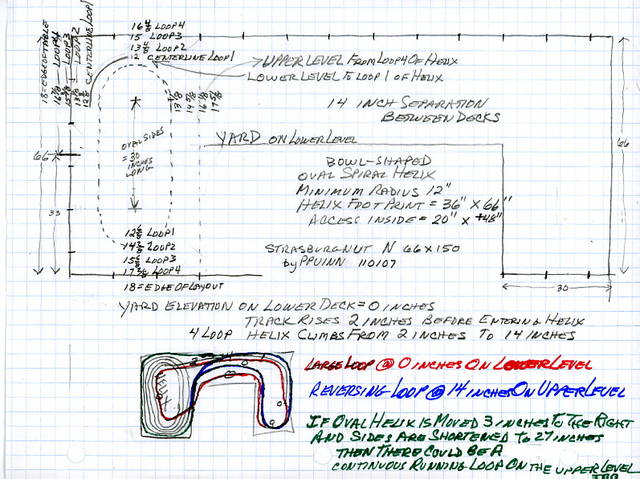 16 4/8 LOOP4
15 LOOP3
13 4/8 LOOP2
12 CENTERLINE LOOP1
18=EDGE OF TABLE
LOOP4
LOOP3
LOOP2
CENTERLINE LOOP1
UPPER LEVEL FROM LOOP4 OF HELIX
LOWER LEVEL TO LOOP1 OF HELIX
14 INCH SEPARATION
BETWEEN DECKS
OVAL SIDES
=30
INCHES
LONG
YARD ON LOWER LEVEL
66
66
33
BOWL-SHAPED
OVAL SPIRAL HELIX
MINIMUM RADIUS 12"
HELIX FOOT PRINT = 36" X 66"
ACCESS INSIDE = 20" X 48"
12 5/8 LOOP1
14 2/8 LOOP2
15 5/8 LOOP3
17 5/8 LOOP4
18=EDGE OF LAYOUT
STRASBURGNUT N 66X150
by PPUINN 110107
30
YARD ELEVATION ON LOWER DECK=0 INCHES
TRACK RISES 2 INCHES BEFORE ENTERING HELIX
4 LOOP HELIX CLIMBS FROM 2 INCHES TO 14 INCHES
LARGE LOOP @ 0 INCHES ON LOWER LEVEL
REVERSING LOOP @ 14 INCHES ON UPPER LEVEL
IF OVAL HELIX IS MOVED 3 INCHES TO THE RIGHT
AND SIDES ARE SHORTENED TO 27 INCHES
THEN THERE COULD BE A
CONTINUOUS RUNNING LOOP ON THE UPPER LEVEL